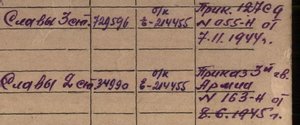 Славы 3 ст. 729596 о/к Е-214455 Прик. 127 сд
N 055-Н от
7.11.1944г.
Славы 2 ст 34990 о/к Е-214455 Приказ 3й гв.
Армии
N 163-Н от
8.6.1945г